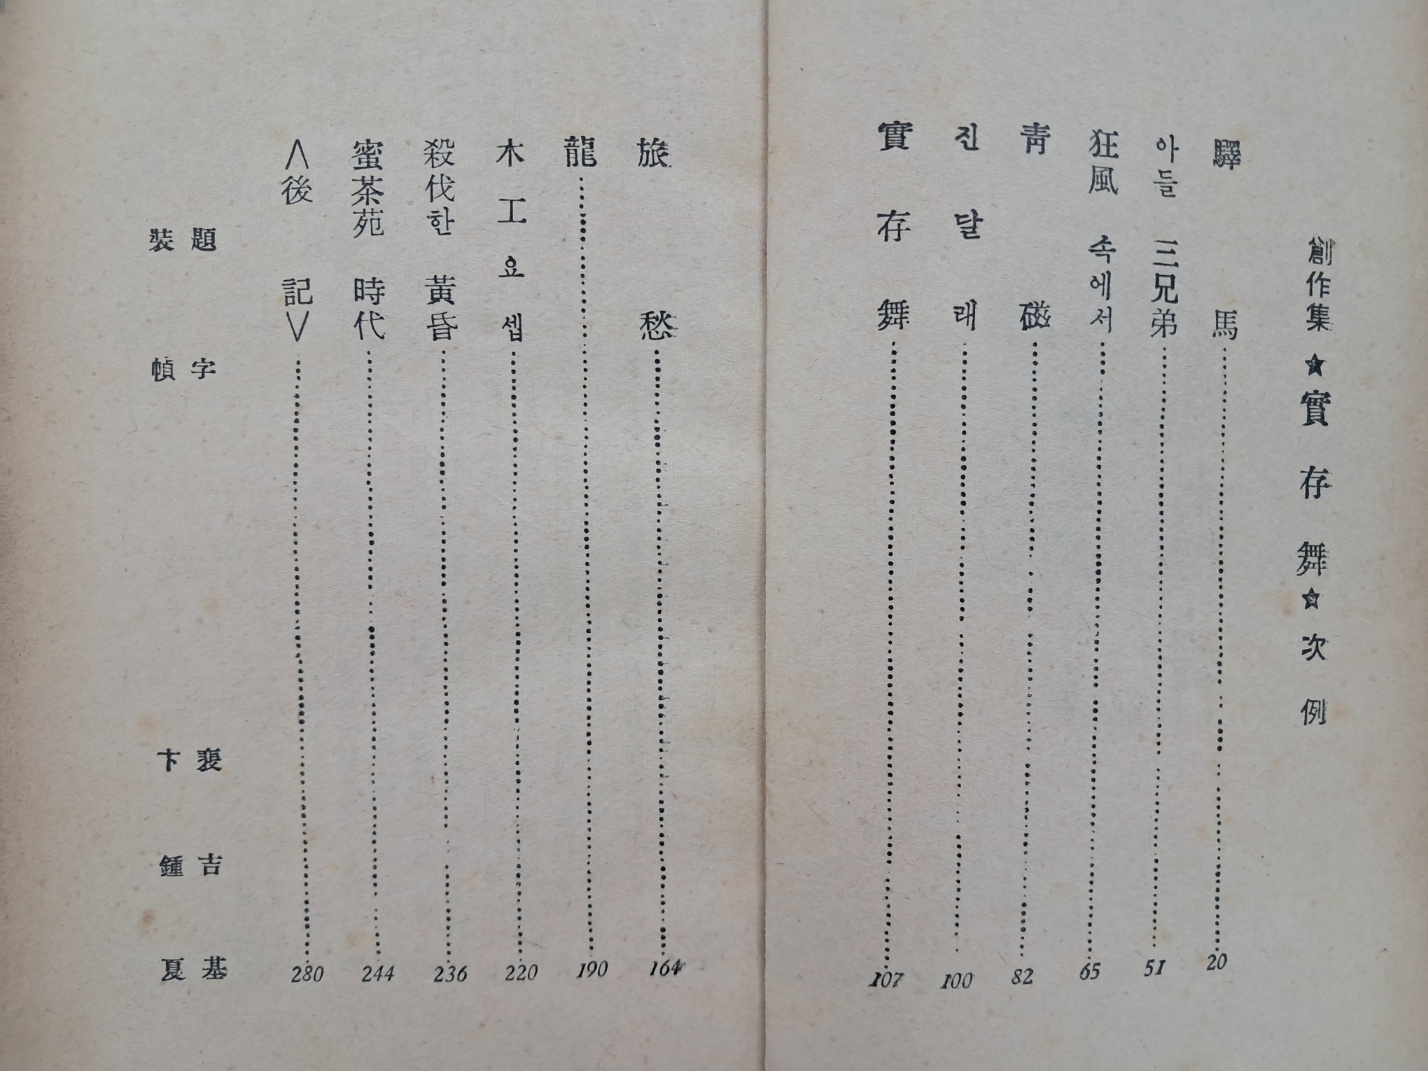 創作集★實存舞☆次例
驛馬 20
아들 三兄弟 51
狂風 속에서 65
靑磁 82
진달래 100
實存舞 107
旅愁 164
龍 190
木工요셉 220
殺伐한 黃昏 236
蜜茶苑 時代 244
<後記> 280
題字 裵吉基
裝幀 卞鍾夏